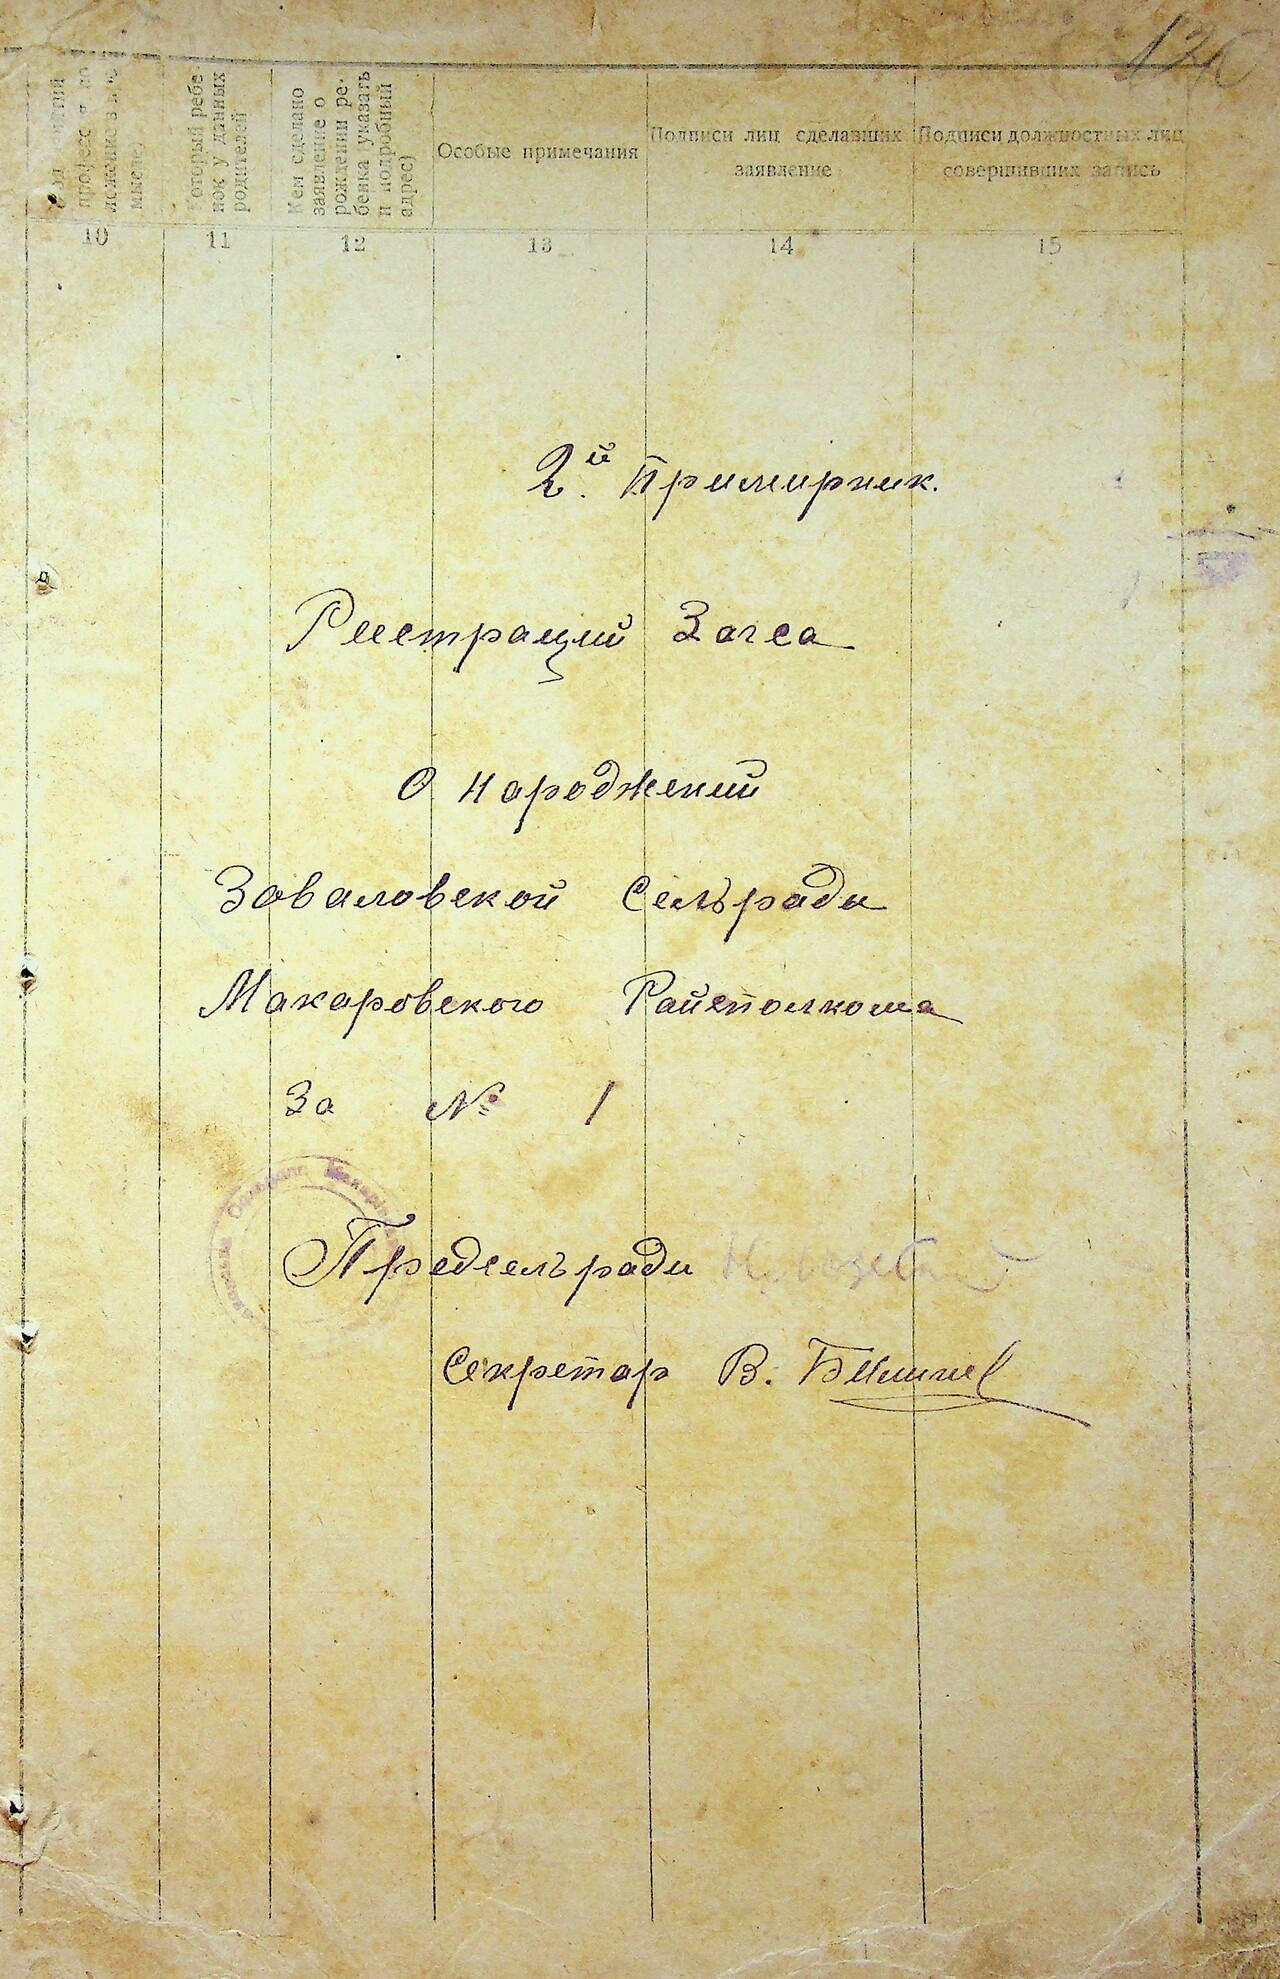 Который ребе-
нок у данных
родителей
Кем сделано
заявление о
рождении ре-
бенка указать
и подробный
адрес)
Особые примечания
Подписи лиц сделавших
заявление
Подписи должностных лиц
совершивших запись
10 11 12 13 14 15
2.й Примирник.
Реестраций Загса
О народжений
Заваловской Сельради
Макаровского Райсполкома
За № 1
Предсельради
Секретар В.